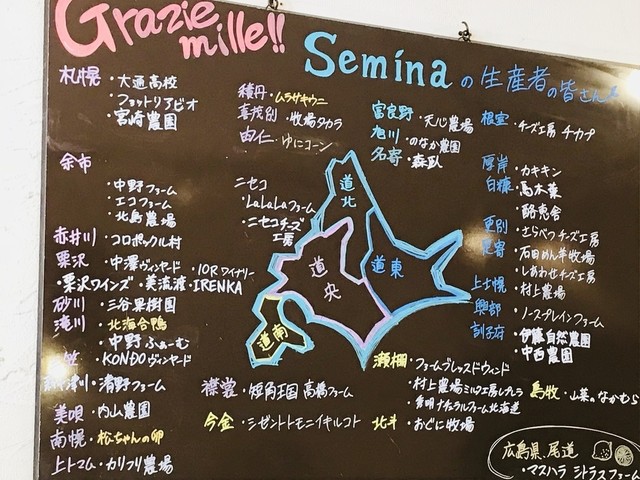 Grazie
mille!!
Seminaの生産者の皆さん
札幌・大通高校
・フットリアビオ
・宮崎農園
積丹・ムラサキウニ
喜茂別・牧場タカラ
由仁・ゆにコーン
富良野・天心農場
旭川・のなか農園
名寄・森臥
根室・チーズ工房チカプ
余市
・中野ファーム
・エコファーム
・北島農場
ニセコ
・LaLaLaファーム
・ニセコチーズ
工房
厚岸・カキキン
白糠・高木葉
・酪恵舎
更別・さらべつチーズ工房
足寄・石田めん羊牧場
・しあわせチーズ工房
上士幌・村上農場
興部・ノースプレインファーム
訓子府・伊藤自然農園
・中西農園
道北
道央
道東
道南
赤井川・コロポックル村
栗沢・中澤ヴィンヤード・10Rワイナリー
・栗沢ワインズ・美流渡・IRENKA
砂川・三谷果樹園
滝川・北海合鴨
・中野ふぁーむ
笠・KONDOヴィンヤード
津川・清野ファーム
美唄・内山農園
南幌・松ちゃんの卵
上トマム・カリフリ農場
襟裳・短角王国 高橋ファーム
今金・シゼントトモニイキルコト
瀬棚・ファームブレッスドウィンド
・村上農場ミルク工房レプレラ
・秀明ナチュラルファーム北海道
北斗・おぐに牧場
島牧・山菜のなかむら
広島県、尾道
・マスハラシトラスファーム